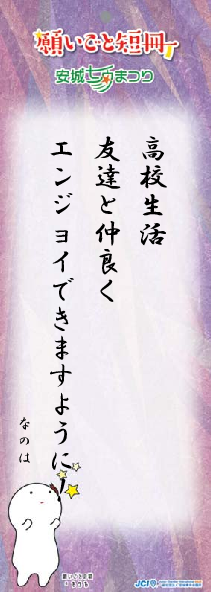 願いごと短冊
安城七夕まつり
高校生活
友達と仲良く
エンジョイできますように!
なのは
JCI